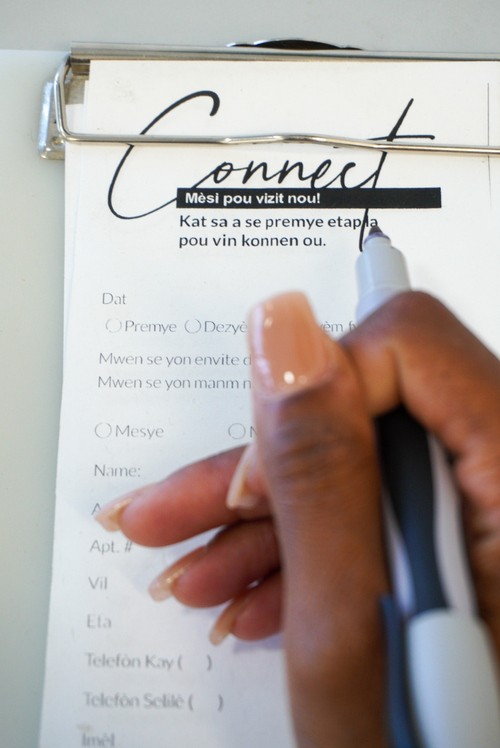 Connect
Mèsi pou vizit nou!
Kat sa a se premye etap la
pou vin konnen ou.
Dat
Premye Dezyè
Mwen se yon envite
Mwen se yon manm
Mesye
Name:
Apt. #
Vil
Eta
Telefòn Kay ( )
Telefòn Selilè ( )
Imèl